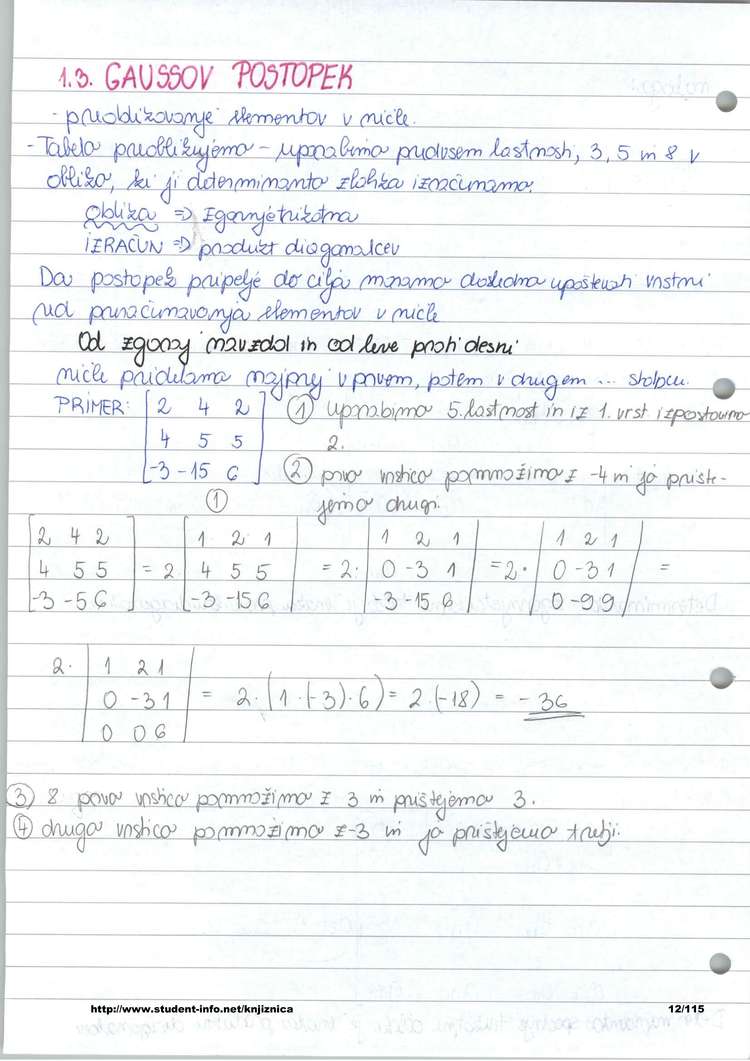 1.3. GAUSSOV POSTOPEK
- preoblikovanje elementov v ničle.
- Tabelo preoblikujemo - uporabimo predvsem lastnosti, 3, 5 in 8 v
obliko, ki ji determinanto zlahka izračunamo.
Oblika => zgornjetrikotna
IZRAČUN => produkt diagonalcev
Da postopek pripelje do cilja moramo dosledno upoštevati vrstni
red preračunavanja elementov v ničle
Od zgoraj navzdol in od leve proti desni
ničle pridelamo najprej v prvem, potem v drugem ... stolpcu.
PRIMER: [2 4 2] ① uporabimo 5. lastnost in iz 1. vrst. izpostavimo
4 5 5 2.
-3 -15 6 ② prvo vrstico pomnožimo z -4 in jo prište-
① jemo drugi.
2 4 2 1 2 1 1 2 1 1 2 1
4 5 5 = 2 4 5 5 = 2· 0 -3 1 = 2· 0 -3 1 =
-3 -5 6 -3 -15 6 -3 -15 6 0 -9 9
2· 1 2 1
0 -3 1 = 2·(1·(-3)·6) = 2·(-18) = -36
0 0 6
③ 8 prvo vrstico pomnožimo z 3 in prištejemo 3.
④ drugo vrstico pomnožimo z -3 in jo prištejemo tretji.
http://www.student-info.net/knjiznica 12/115